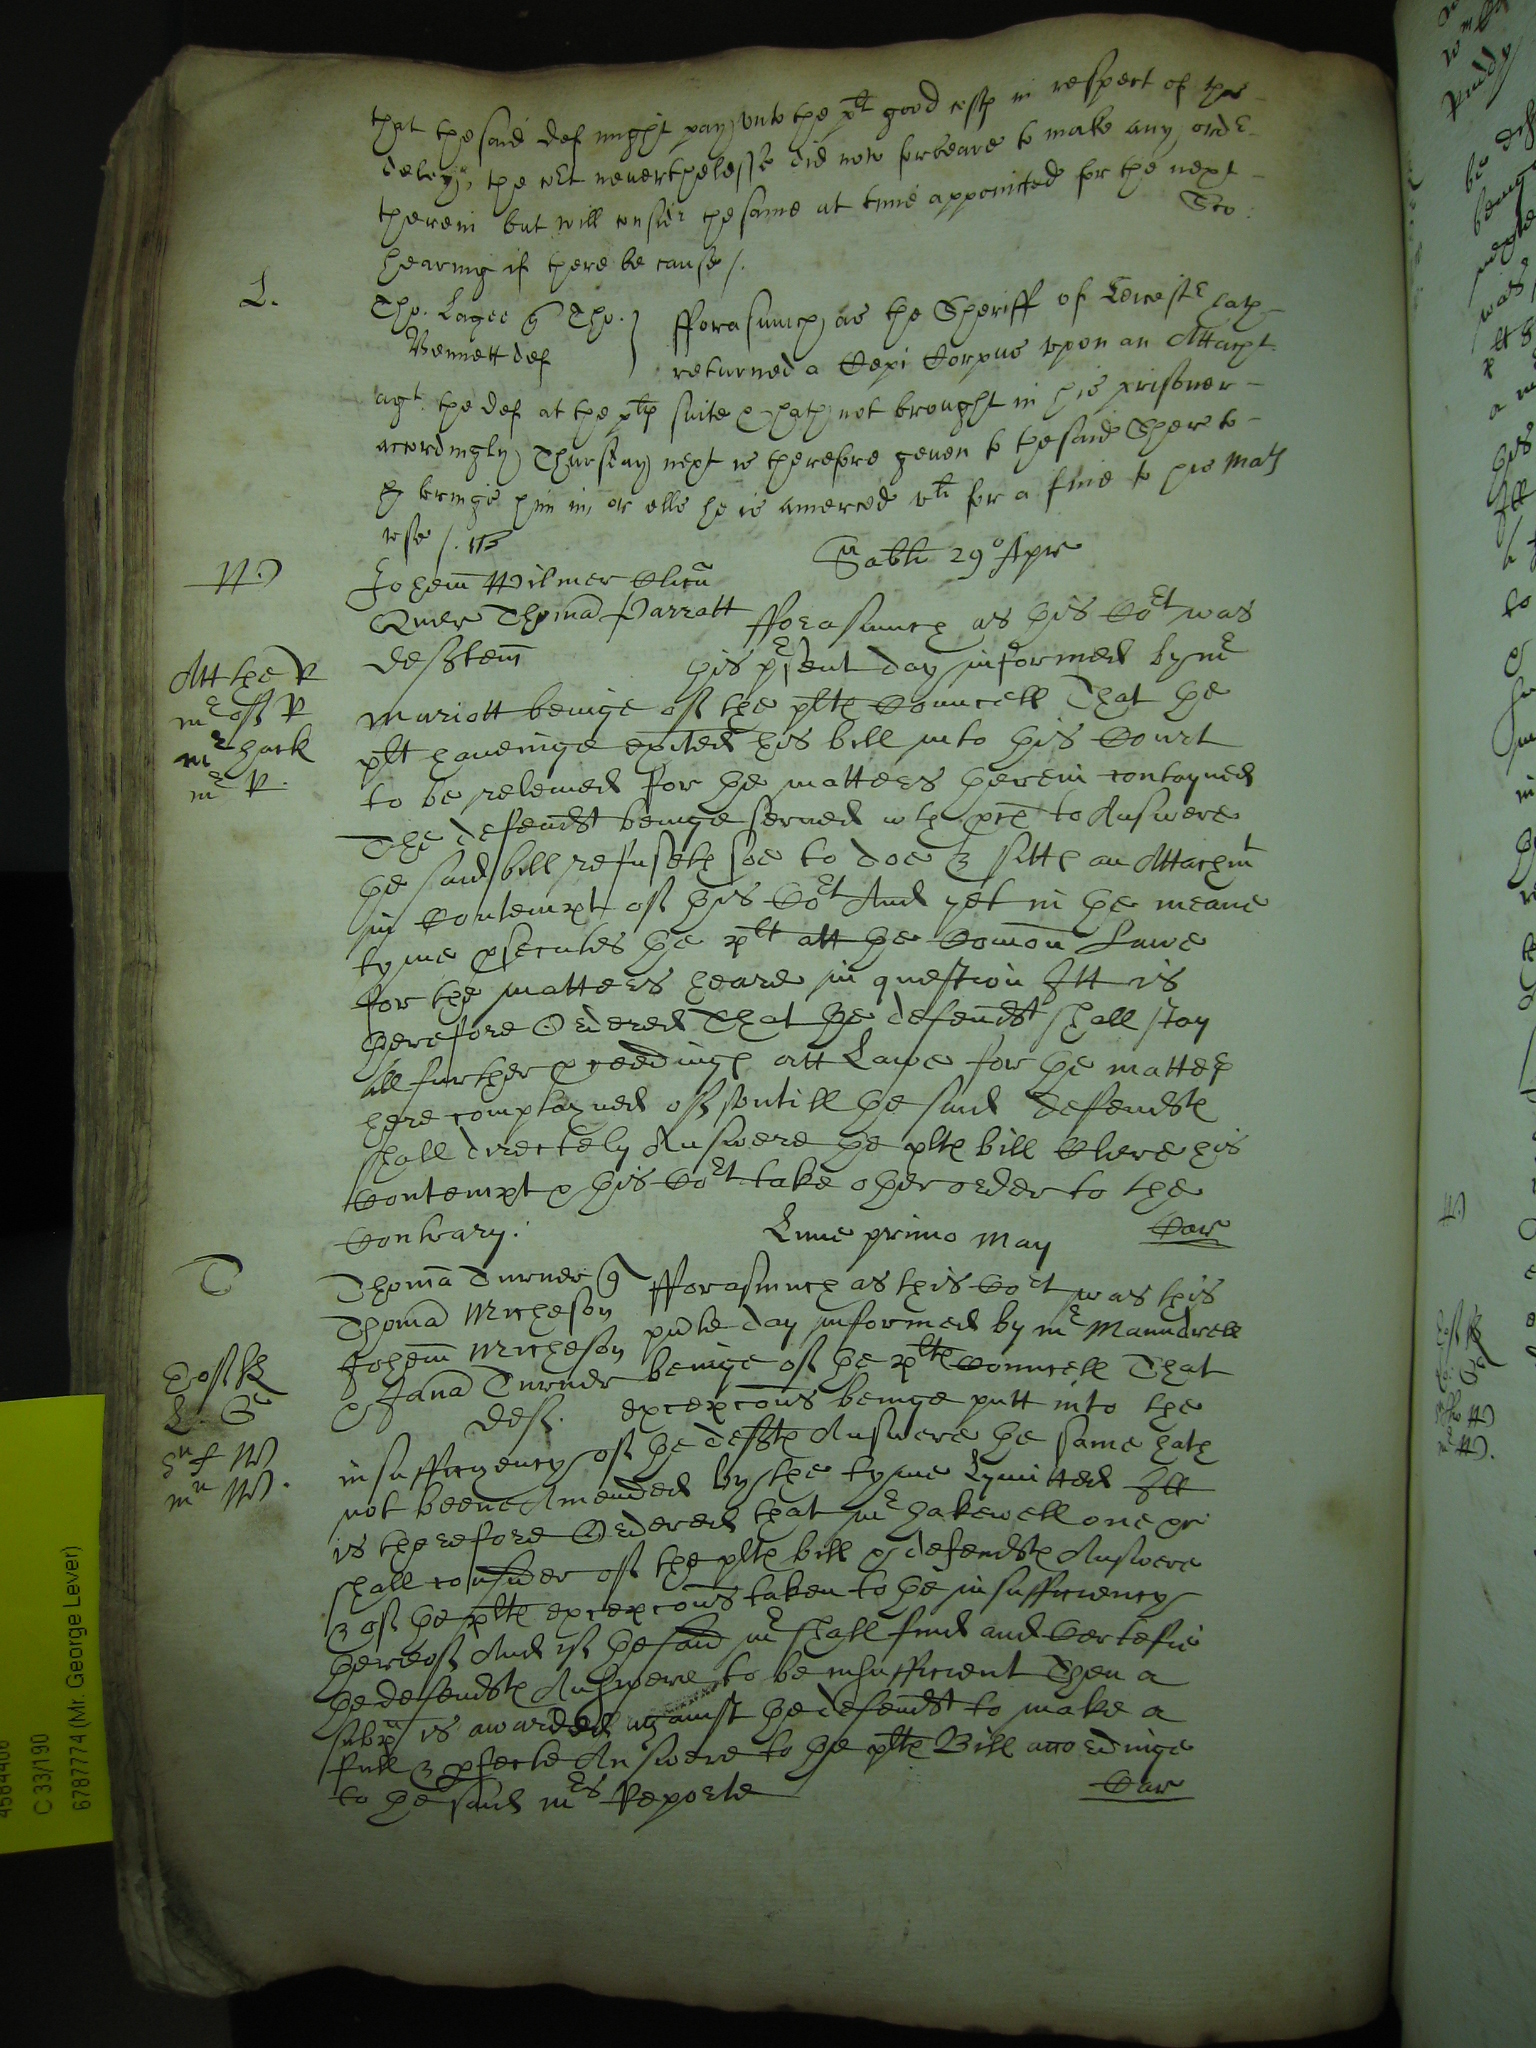 that the said def might pay unto the plt good costs in respect of the
deley, the cort neuerthelesse did now forbeare to make any order
therein but will consider the same at time appointed for the next
hearing if there be cause /.
L.
Tho. Lacee Tho.
Bennett def
fforasmuch as the Sheriff of Leicestr hath
returned a Cepi Corpus vpon an Attacht
agt the def at the plts suite & hath not brought in his prisoner
accordingly Thursday next is therefore geuen to the said Sher to
bringe him in or els he is amerced vli for a fine to his Mats
vse /.
W
Sabti 29o Apr
Johem Wilmer
Quer Thoma Parratt
deftem
fforasmuch as this Cort was
this present day informed by mr
Att the R
mr off R
mr hack
mr R.
Mariott beinge of the plts Councell That the
plt haueinge exited his bill into this Court
to be releiued for the matters therein contayned
The defendt beinge serued wth to Answere
the said bill refuseth soe to doe & sitts an Attachmt
in Contempt of this Cort And yet in the meane
tyme psecutes the plt att the Comon Lawe
for the matters heare in question Itt is
therefore Ordered That the defendt shall stay
all further pceedings att Lawe for the matters
here complayned of vntill the said defendts
shall directely Answere the plts bill Clere his
Contempt & this Cort take other order to the
Contrary.
Lune primo May
T
Thoma Turner
Thoma Micheson
Johem Micheson
& Jana Turner
def.
fforasmuch as this Cort was this
pnte day informed by mr Maundrell
beinge of the plts Councell That
excepcons beinge putt into the
insufficyency of the defts Answere the same hath
not beene Amended by the tyme Lymitted Itt
is therefore Ordered that mr hakewell one &c
shall consider of the plts bill & defendts Answere
& of the plts excepcons taken to the insufficiency
thereof And if the said mr shall find and Certefie
the defendts Answere to be insufficient Then a
subp is awarded against the defendt to make a
full & pfecte Answere to the plts Bill accordinge
to the said mrs Reporte
C 33/190
6787774 (Mr. George Lever)